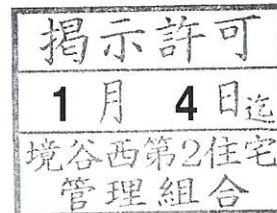 掲示許可
1月 4日迄
境谷西第2住宅
管理組合